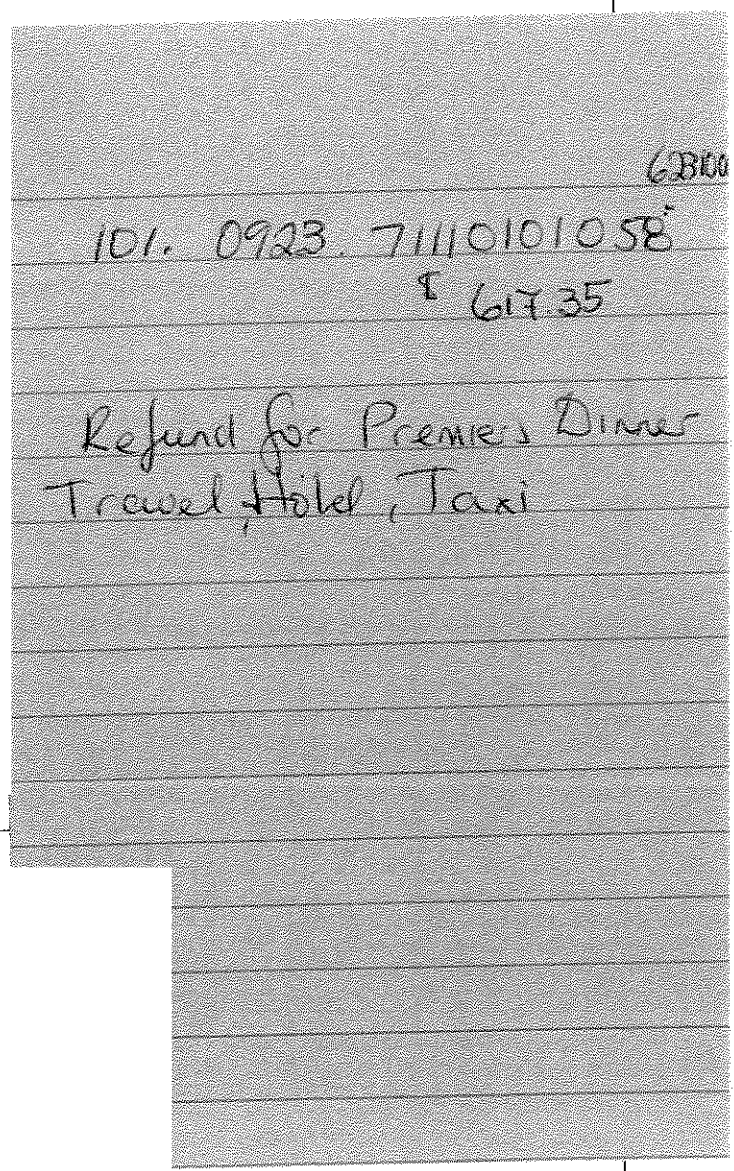 623100
101. 0923. 71110101058
$ 617.35
Refund for Premiers Dinner
Travel, Hotel, Taxi